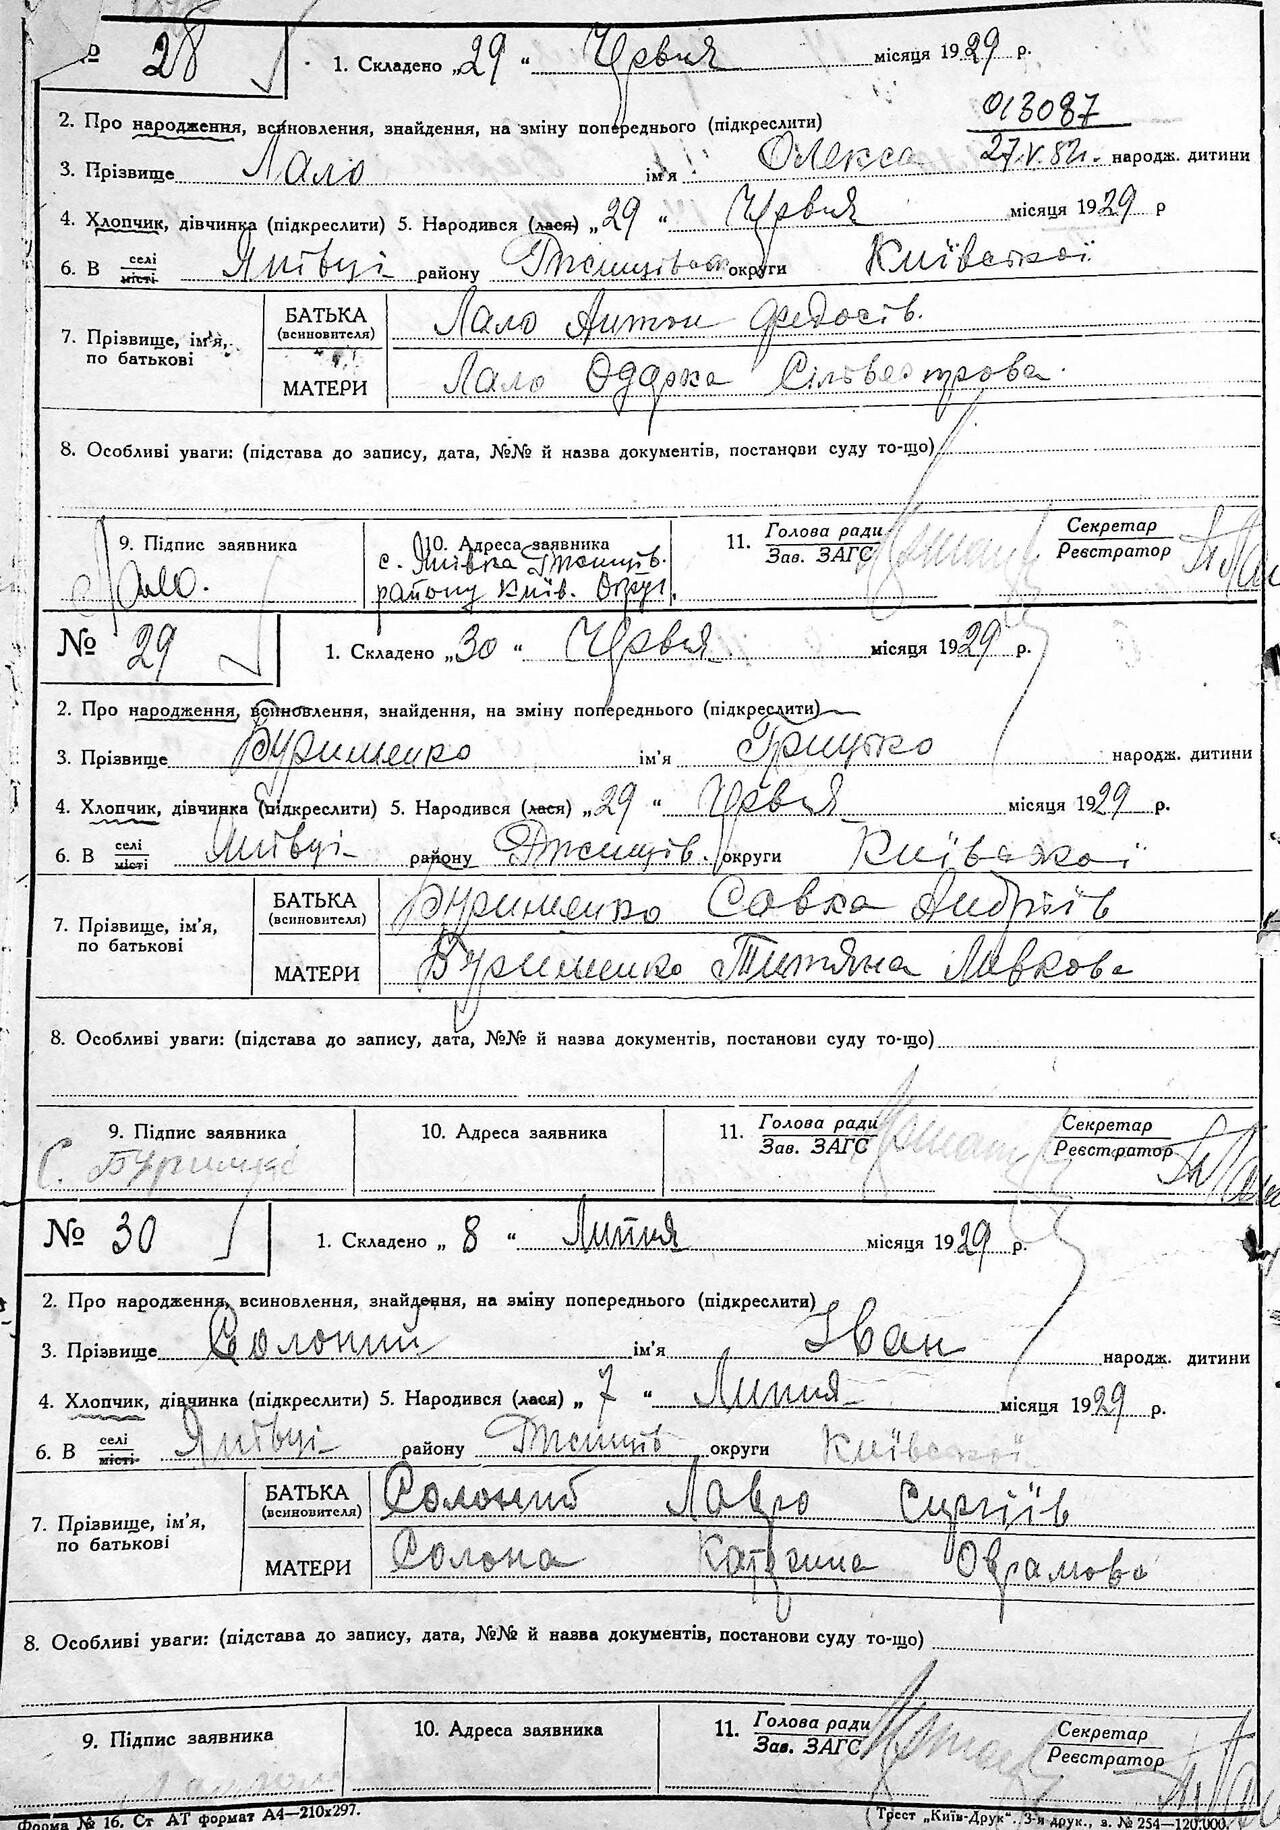 № 28 1. Складено „29“ Червня місяця 1929 р.
013087
2. Про народження, всиновлення, знайдення, на зміну попереднього (підкреслити)
27.V.82г.
3. Прізвище Лало ім'я Олекса народж. дитини
4. Хлопчик, дівчинка (підкреслити) 5. Народився (лася) „29“ Червня місяця 1929 р
6. В селі місті Янівці району округи Київської
7. Прізвище, ім'я, по батькові
БАТЬКА (всиновителя) Лало Антон Федосів.
МАТЕРИ Лало Одарка Сільвестрова.
8. Особливі уваги: (підстава до запису, дата, №№ й назва документів, постанови суду то-що)
9. Підпис заявника 10. Адреса заявника 11. Голова ради Зав. ЗАГС Секретар Реєстратор
Лало. с. Янівка
району Київ. Округ.
№ 29 1. Складено „30“ Червня місяця 1929 р.
2. Про народження, всиновлення, знайдення, на зміну попереднього (підкреслити)
3. Прізвище Бурименко ім'я Грицько народж. дитини
4. Хлопчик, дівчинка (підкреслити) 5. Народився (лася) „29“ Червня місяця 1929 р.
6. В селі місті Янівці району округи Київської
7. Прізвище, ім'я, по батькові
БАТЬКА (всиновителя) Бурименко Савка Андріїв
МАТЕРИ Бурименко Титяна Левкова
8. Особливі уваги: (підстава до запису, дата, №№ й назва документів, постанови суду то-що)
9. Підпис заявника 10. Адреса заявника 11. Голова ради Зав. ЗАГС Секретар Реєстратор
№ 30 1. Складено „8“ Липня місяця 1929 р.
2. Про народження, всиновлення, знайдення, на зміну попереднього (підкреслити)
3. Прізвище Солоний ім'я Іван народж. дитини
4. Хлопчик, дівчинка (підкреслити) 5. Народився (лася) „7“ Липня місяця 1929 р.
6. В селі місті Янівці району округи Київської
7. Прізвище, ім'я, по батькові
БАТЬКА (всиновителя) Солоний Лавро Сергіїв
МАТЕРИ Солона Катерина Оврамова
8. Особливі уваги: (підстава до запису, дата, №№ й назва документів, постанови суду то-що)
9. Підпис заявника 10. Адреса заявника 11. Голова ради Зав. ЗАГС Секретар Реєстратор
Форма № 16. Ст АТ формат А4—210х297. Трест „Київ-Друк“. 3-я друк., з. № 254—120.000.